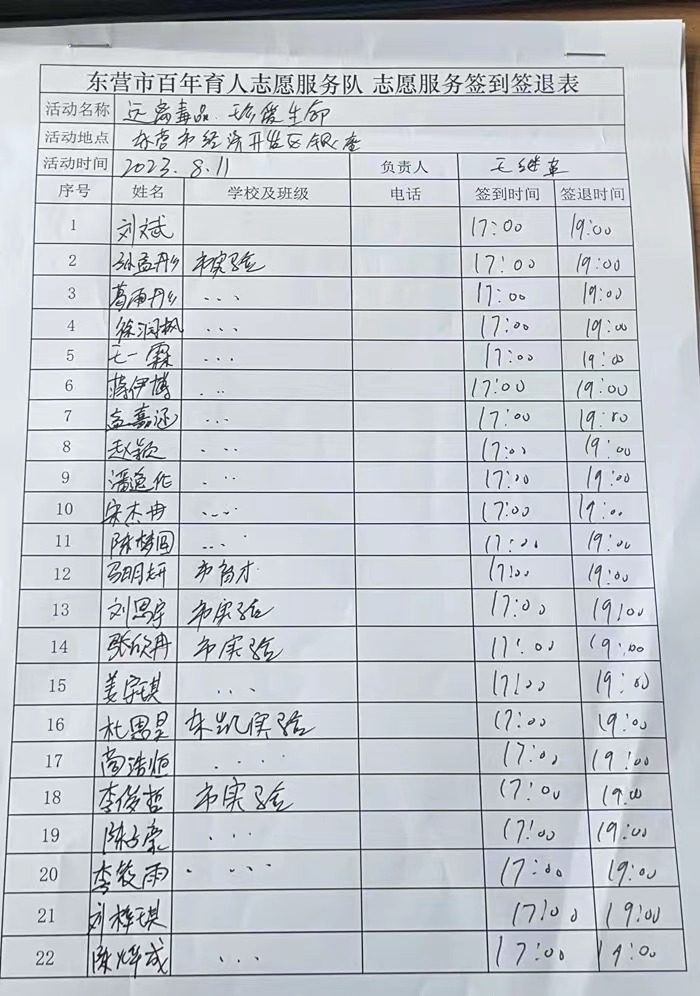 东营市百年育人志愿服务队 志愿服务签到签退表
活动名称 远离毒品 珍爱生命
活动地点 东营市经济开发区银座
活动时间 2023.8.11 负责人 王继革
序号 姓名 学校及班级 电话 签到时间 签退时间
1 刘斌 17:00 19:00
2 孙孟丹 市实验 17:00 19:00
3 葛雨丹 ... 17:00 19:00
4 徐润枫 ... 17:00 19:00
5 王一霖 ... 17:00 19:00
6 蒋伊博 ... 17:00 19:00
7 孟嘉涵 ... 17:00 19:00
8 赵颖 ... 17:00 19:00
9 潘逸伦 ... 17:00 19:00
10 宋杰冉 ... 17:00 19:00
11 陈梦圆 ... 17:00 19:00
12 马明妍 市育才 17:00 19:00
13 刘思宇 市实验 17:00 19:00
14 张欣冉 市实验 17:00 19:00
15 姜宇琪 ... 17:00 19:00
16 杜思昊 东凯实验 17:00 19:00
17 尚浩恒 .... 17:00 19:00
18 李俊哲 市实验 17:00 19:00
19 陈子豪 ... 17:00 19:00
20 李筱雨 .... 17:00 19:00
21 刘梓琪 17:00 19:00
22 陈烨成 ... 17:00 19:00